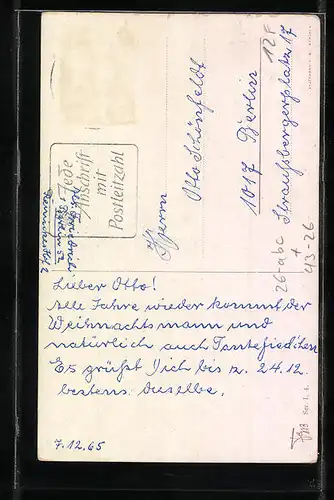 Jede
Anschrift
mit
Postleitzahl
Herrn
Otto Schönfeldt
1017 Berlin
Straußbergerplatz 17
12F
26-abc
+
413-26
Lieber Otto!
Alle Jahre wieder kommt der
Weihnachtsmann und
natürlich auch Tantefiedchen
Es grüßt Dich bis z. 24.12.
bestens dieselbe.
7.12.65